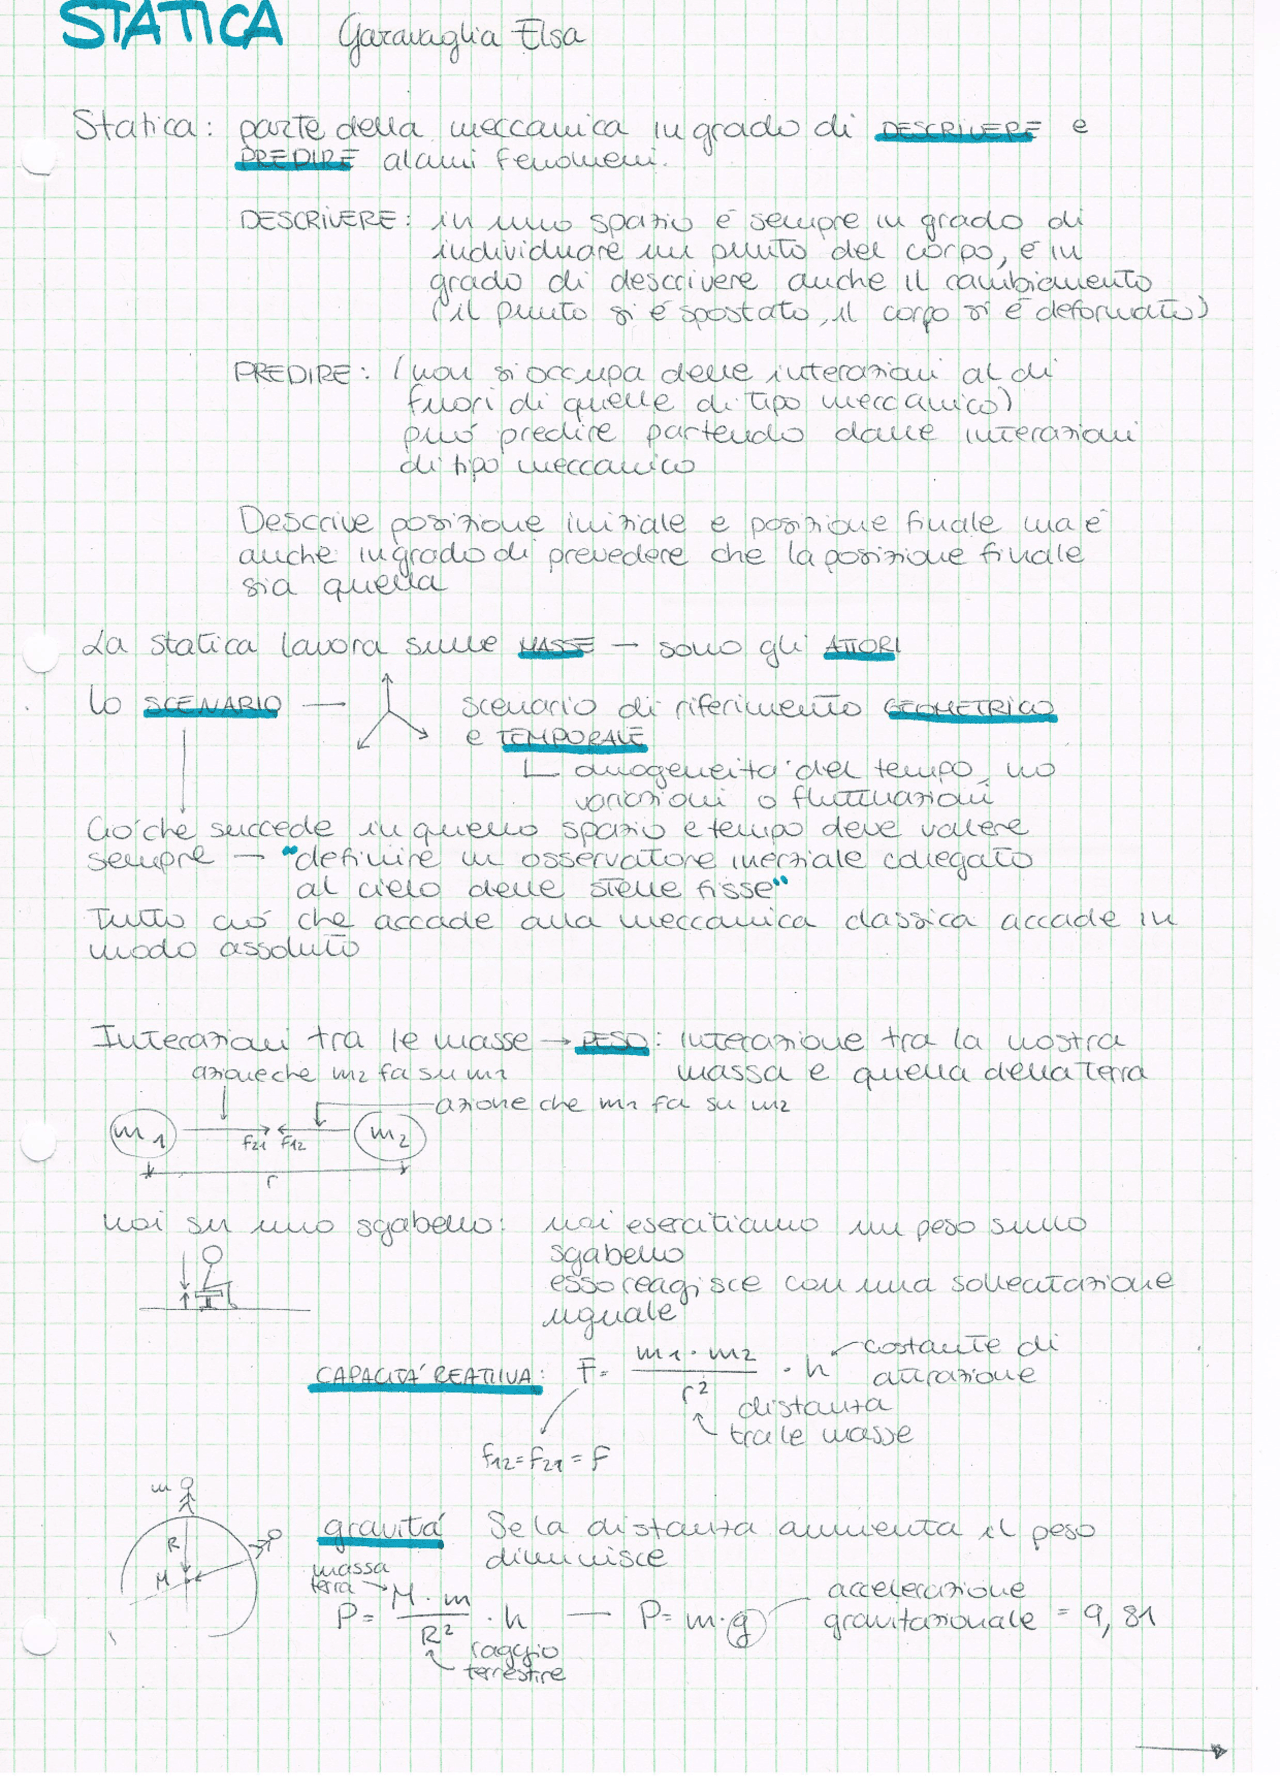 STATICA Garavaglia Elsa
Statica: parte della meccanica in grado di DESCRIVERE e
PREDIRE alcuni fenomeni.
DESCRIVERE: in uno spazio è sempre in grado di
individuare un punto del corpo, è in
grado di descrivere anche il cambiamento
(il punto si è spostato, il corpo si è deformato)
PREDIRE: (non si occupa delle interazioni al di
fuori di quelle di tipo meccanico)
può predire partendo dalle interazioni
di tipo meccanico
Descrive posizione iniziale e posizione finale ma è
anche in grado di prevedere che la posizione finale
sia quella
La statica lavora sulle MASSE — sono gli ATTORI
Lo SCENARIO — scenario di riferimento GEOMETRICO
e TEMPORALE
omogeneità del tempo, no
variazioni o fluttuazioni
Ciò che succede in quello spazio e tempo deve valere
sempre — "definire un osservatore inerziale collegato
al cielo delle stelle fisse"
Tutto ciò che accade alla meccanica classica accade in
modo assoluto
Interazioni tra le masse → PESO: interazione tra la nostra
massa e quella della Terra
azione che m2 fa su m1
azione che m1 fa su m2
m1 f21 f12 m2
r
noi su uno sgabello: noi esercitiamo un peso sullo
sgabello
esso reagisce con una sollecitazione
uguale
CAPACITÀ REATTIVA: F = m1 · m2 / r² · h costante di
attrazione
distanza
tra le masse
f12 = f21 = F
m
R
M
gravità Se la distanza aumenta il peso
diminuisce
massa
terra
P = M · m / R² · h — P = m · g accelerazione
gravitazionale = 9,81
raggio
terrestre